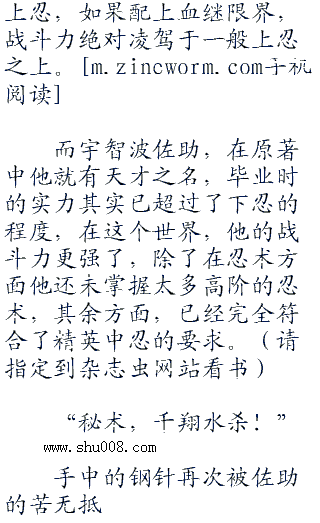 上忍，如果配上血继限界，
战斗力绝对凌驾于一般上忍
之上。[m.zincworm.com手机
阅读]
而宇智波佐助，在原著
中他就有天才之名，毕业时
的实力其实已超过了下忍的
程度，在这个世界，他的战
斗力更强了，除了在忍术方
面他还未掌握太多高阶的忍
术，其余方面，已经完全符
合了精英中忍的要求。（请
指定到杂志虫网站看书）
“秘术，千翔水杀！”
www.shu008.com
手中的钢针再次被佐助
的苦无抵